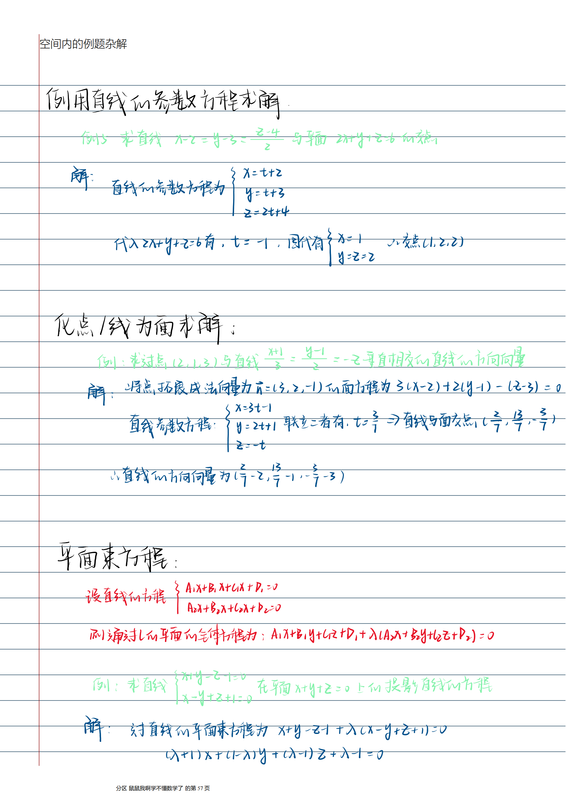 空间内的例题杂解
例用直线的参数方程求解
例3 求直线 x-2=y-3=\frac{z-4}{2} 与平面 2x+y+z=6 的交点
解:
直线的参数方程为 { x=t+2
y=t+3
z=2t+4
代入2x+y+z=6有, t=-1, 回代有 { x=1
y=z=2 ∴交点(1,2,2)
化点/线为面求解:
例:求过点(2,1,3)与直线 \frac{x+1}{3}=\frac{y-1}{2}=-z 垂直相交的直线的方向向量
解: ∴将点拓展成法向量为n=(3,2,-1)的面方程为 3(x-2)+2(y-1)-(z-3)=0
直线参数方程: { x=3t-1
y=2t+1 联立二者有, t=\frac{3}{7} ⇒直线与面交点(\frac{2}{7},\frac{13}{7},-\frac{3}{7})
z=-t
∴直线的方向向量为(\frac{2}{7}-2,\frac{13}{7}-1,-\frac{3}{7}-3)
平面束方程:
设直线的方程 { A₁x+B₁x+C₁x+D₁=0
A₂x+B₂x+C₂x+D₂=0
则通过L的平面的全体方程为: A₁x+B₁y+C₁z+D₁+λ(A₂x+B₂y+C₂z+D₂)=0
例: 求直线 { x+y-z-1=0
x-y+z+1=0 在平面x+y+z=0上的投影直线的方程
解: 过直线的平面束方程为 x+y-z-1+λ(x-y+z+1)=0
(λ+1)x+(1-λ)y+(λ-1)z+λ-1=0
分区 鼠鼠我啊学不懂数学了 的第 57 页